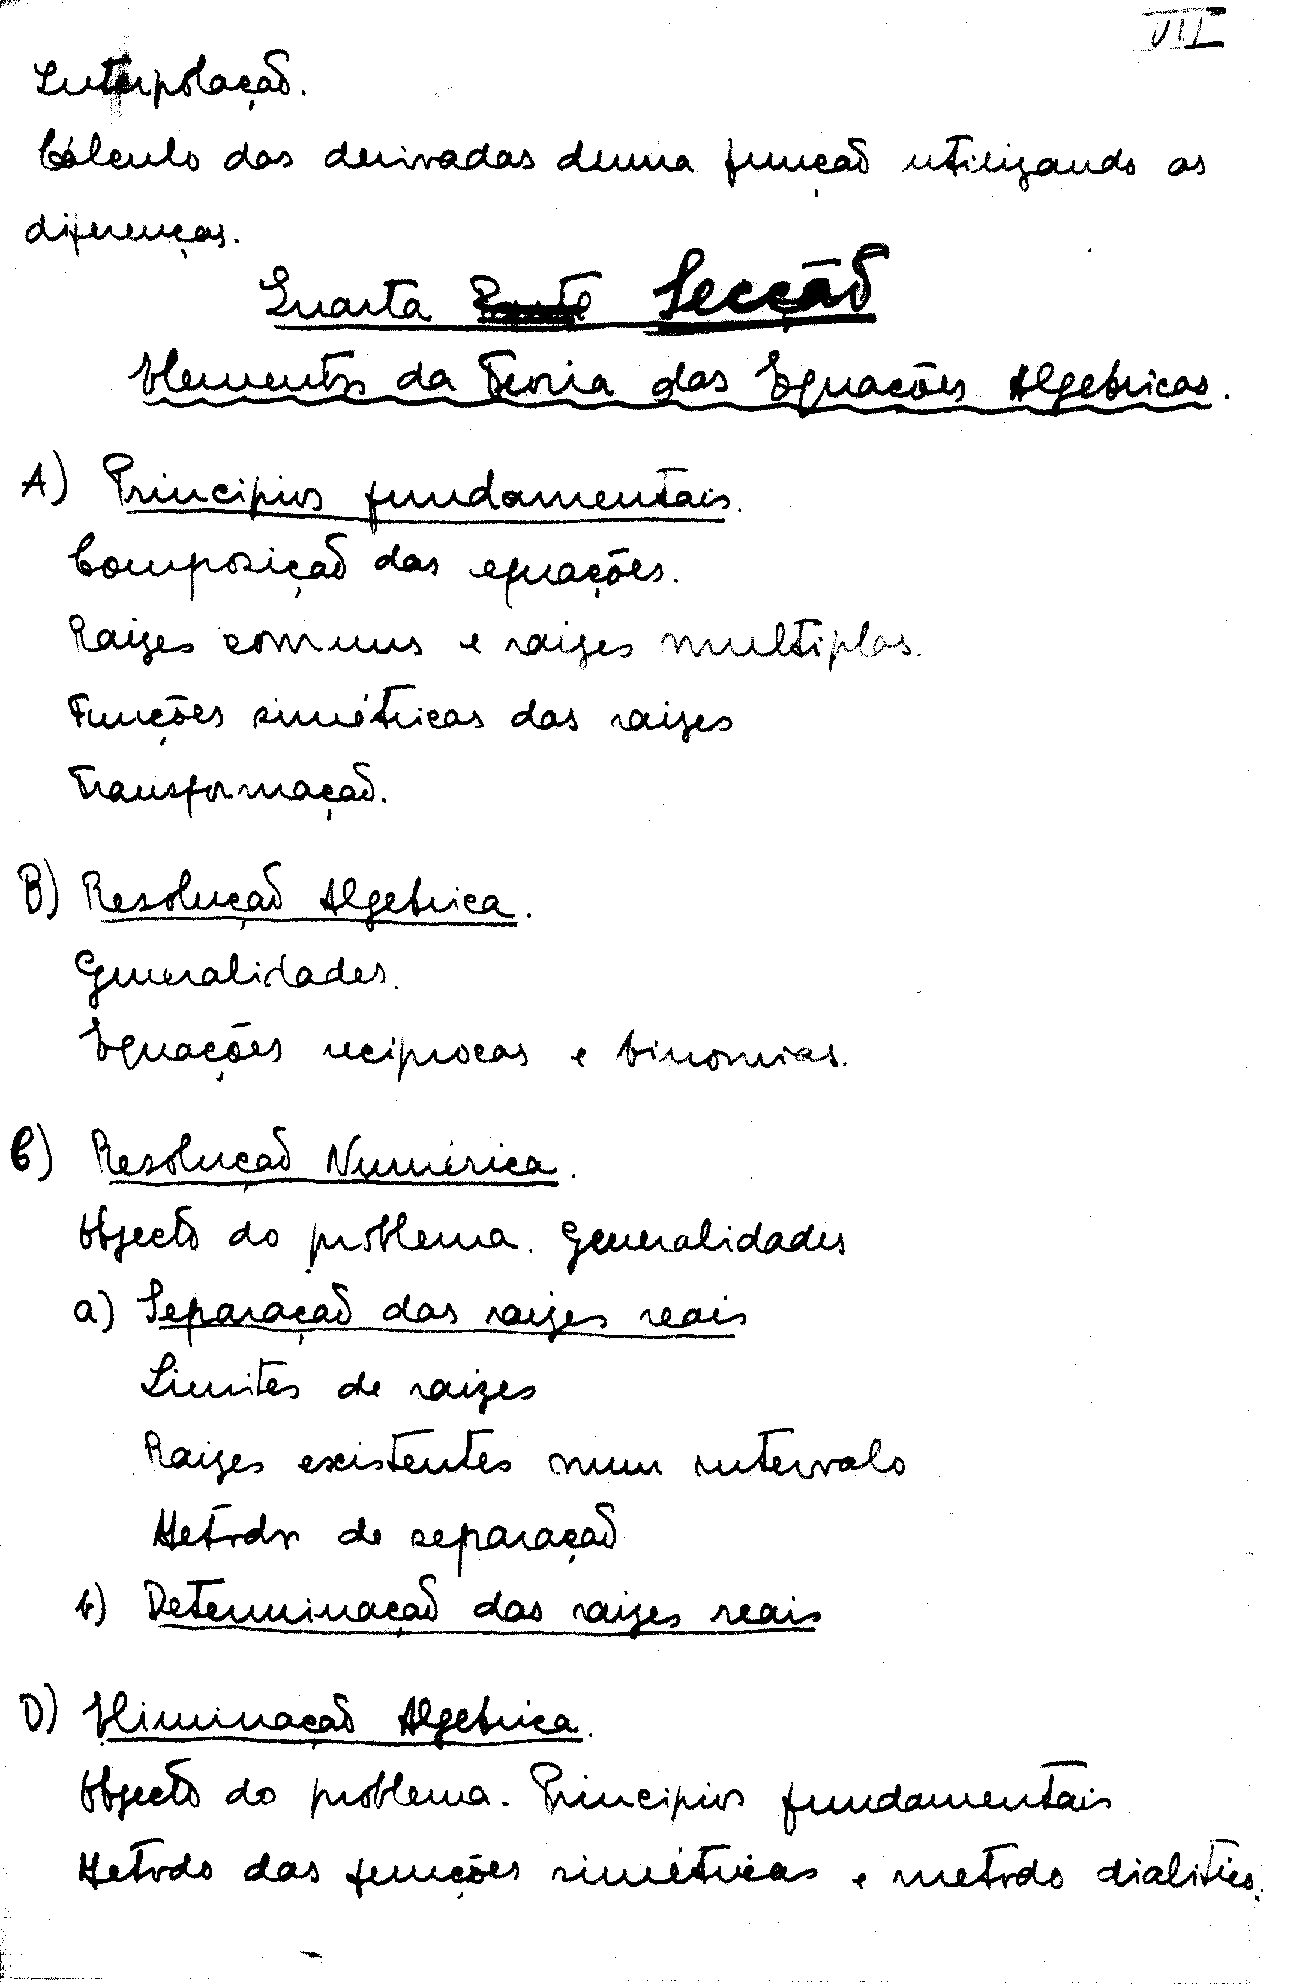 VII
Interpolação.
Cálculo das derivadas duma função utilizando as
diferenças.
Quarta Parte Secção
Elementos da Teoria das Equações Algebricas.
A) Principios fundamentais.
Composição das equações.
Raizes comuns e raizes multiplas.
Funções simétricas das raizes
Transformação.
B) Resolução Algebrica.
Generalidades.
Equações reciprocas e binomias.
C) Resolução Numérica.
Objecto do problema. Generalidades
a) Separação das raizes reais
Limites de raizes
Raizes existentes num intervalo
Metodos de separação
b) Determinação das raizes reais
D) Eliminação Algebrica.
Objecto do problema. Principios fundamentais
Metodo das funções simétricas e metodo dialitico.